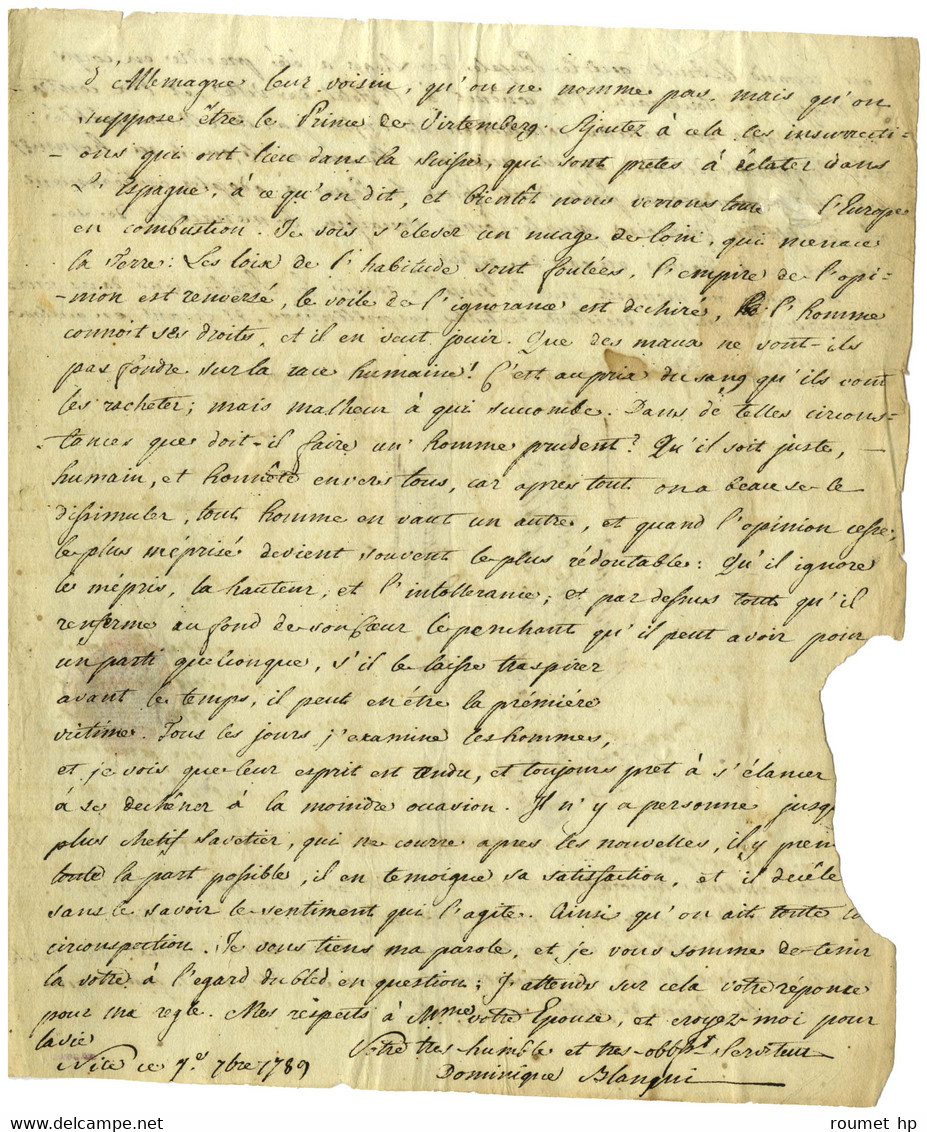 d'Allemagne leur voisin, qu'on ne nomme pas, mais qu'on
suppose être le Prince de Virtemberg. Ajoutez à cela les insurrecti-
-ons qui ont lieu dans la Suisse, qui sont pretes à éclater dans
L'Espagne, à ce qu'on dit, et bientôt nous verrons toute l'Europe
en combustion. Je vois s'élever un nuage de loin, qui menace
la Terre: Les loix de l'habitude sont foulées, l'empire de l'opi-
-nion est renversé, le voile de l'ignorance est dechiré, l'homme
connoit ses droits, et il en veut jouir. Que des maux ne vont-ils
pas fondre sur la race humaine! C'est au prix du sang qu'ils vont
les racheter; mais malheur à qui succombe. Dans de telles circons-
-tances que doit-il faire un homme prudent? Qu'il soit juste,
humain, et honnête envers tous, car après tout on a beau se le
dissimuler, tout homme en vaut un autre, et quand l'opinion cesse,
le plus méprisé devient souvent le plus rédoutable: Qu'il ignore
le mépris, la hauteur, et l'intollerance; et par dessus tout qu'il
renferme au fond de son Cœur le penchant qu'il peut avoir pour
un parti quelconque, s'il le laisse traspirer
avant le temps, il peut en être la prémiére
victime. Tous les jours j'examine les hommes,
et je vois que leur esprit est tendu, et toujours pret à s'élancer
à se dechêner à la moindre occasion. Il n'y a personne jusq
plus chetif savetier, qui ne courre apres les nouvelles, il y pren
toute la part possible, il en temoigne sa satisfaction, et il decéle
sans le savoir le sentiment qui l'agite. Ainsi qu'on ait toute la
circonspection. Je vous tiens ma parole, et je vous somme de tenir
la votre à l'egard du bled en question; J'attends sur cela votre réponse
pour ma regle. Mes respects à Mme votre Epouse, et croyez-moi pour
la vie
Votre tres-humble et tres-obbst Serviteur
Nice ce 7e 7bre 1789 Dominique Blanqui
roumet hp